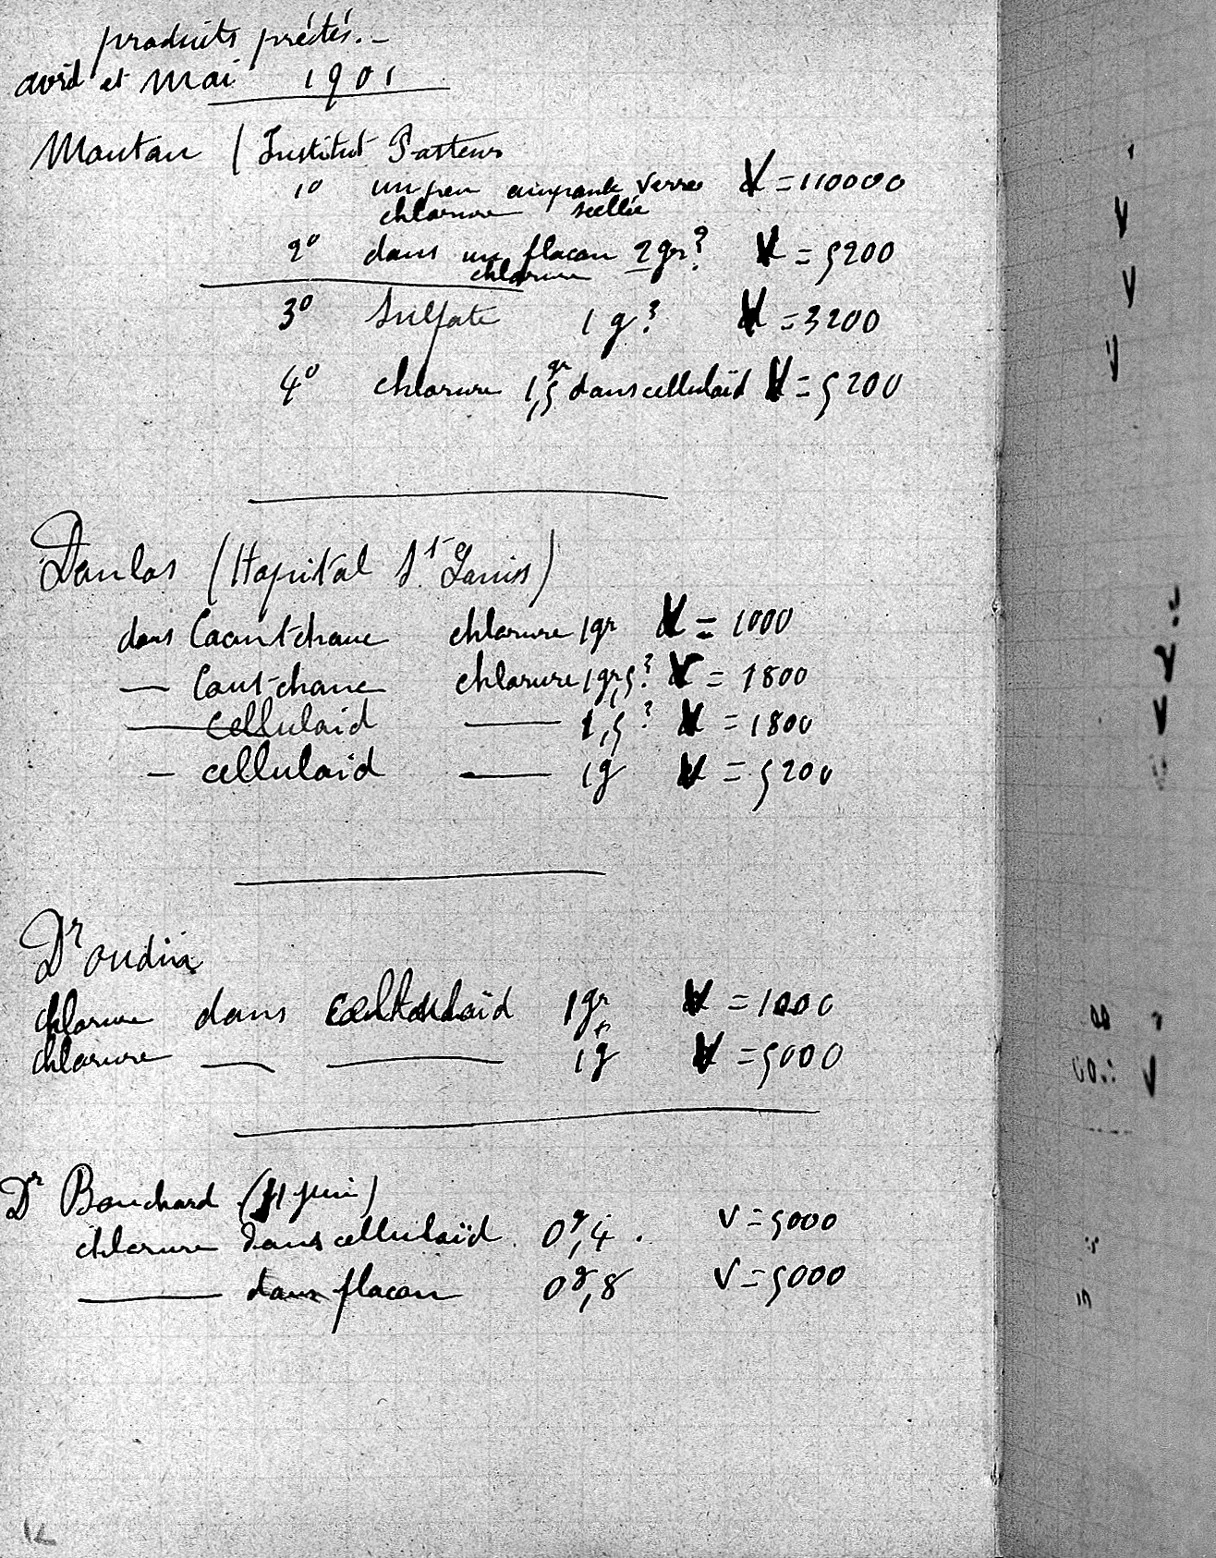 produits prêtés.-
avril et Mai 1901
Moutan (Institut Pasteur
1° un peu ampoule verre V = 110000
chlorure scellée
2° dans un flacon 2gr? V = 5200
chlorure
3° Sulfate 1 g? V = 3200
4° chlorure 1,5 gr dans celluloïd V = 5200
Danlos (Hopital St Louis)
dans Caoutchouc chlorure 1gr V = 1000
— Caoutchouc chlorure 1gr,5? V = 1800
— celluloïd — 1,5? V = 1800
— celluloïd — 1g V = 5200
Dr oudin
chlorure dans celluloïd 1gr V = 1000
chlorure — — 1g V = 5000
Dr Bouchard (11 juin)
chlorure dans celluloïd 0g,4. V = 5000
— dans flacon 0g,8 V = 5000